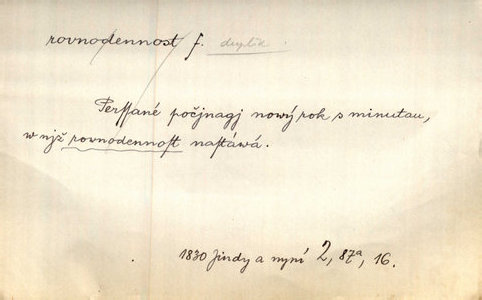 rovnodennost f.
Perſſané počjnagj nový rok s minutau,
w njž rovnodennoſt naſtáwá.
1830 Jindy a nyní 2, 87ª, 16.